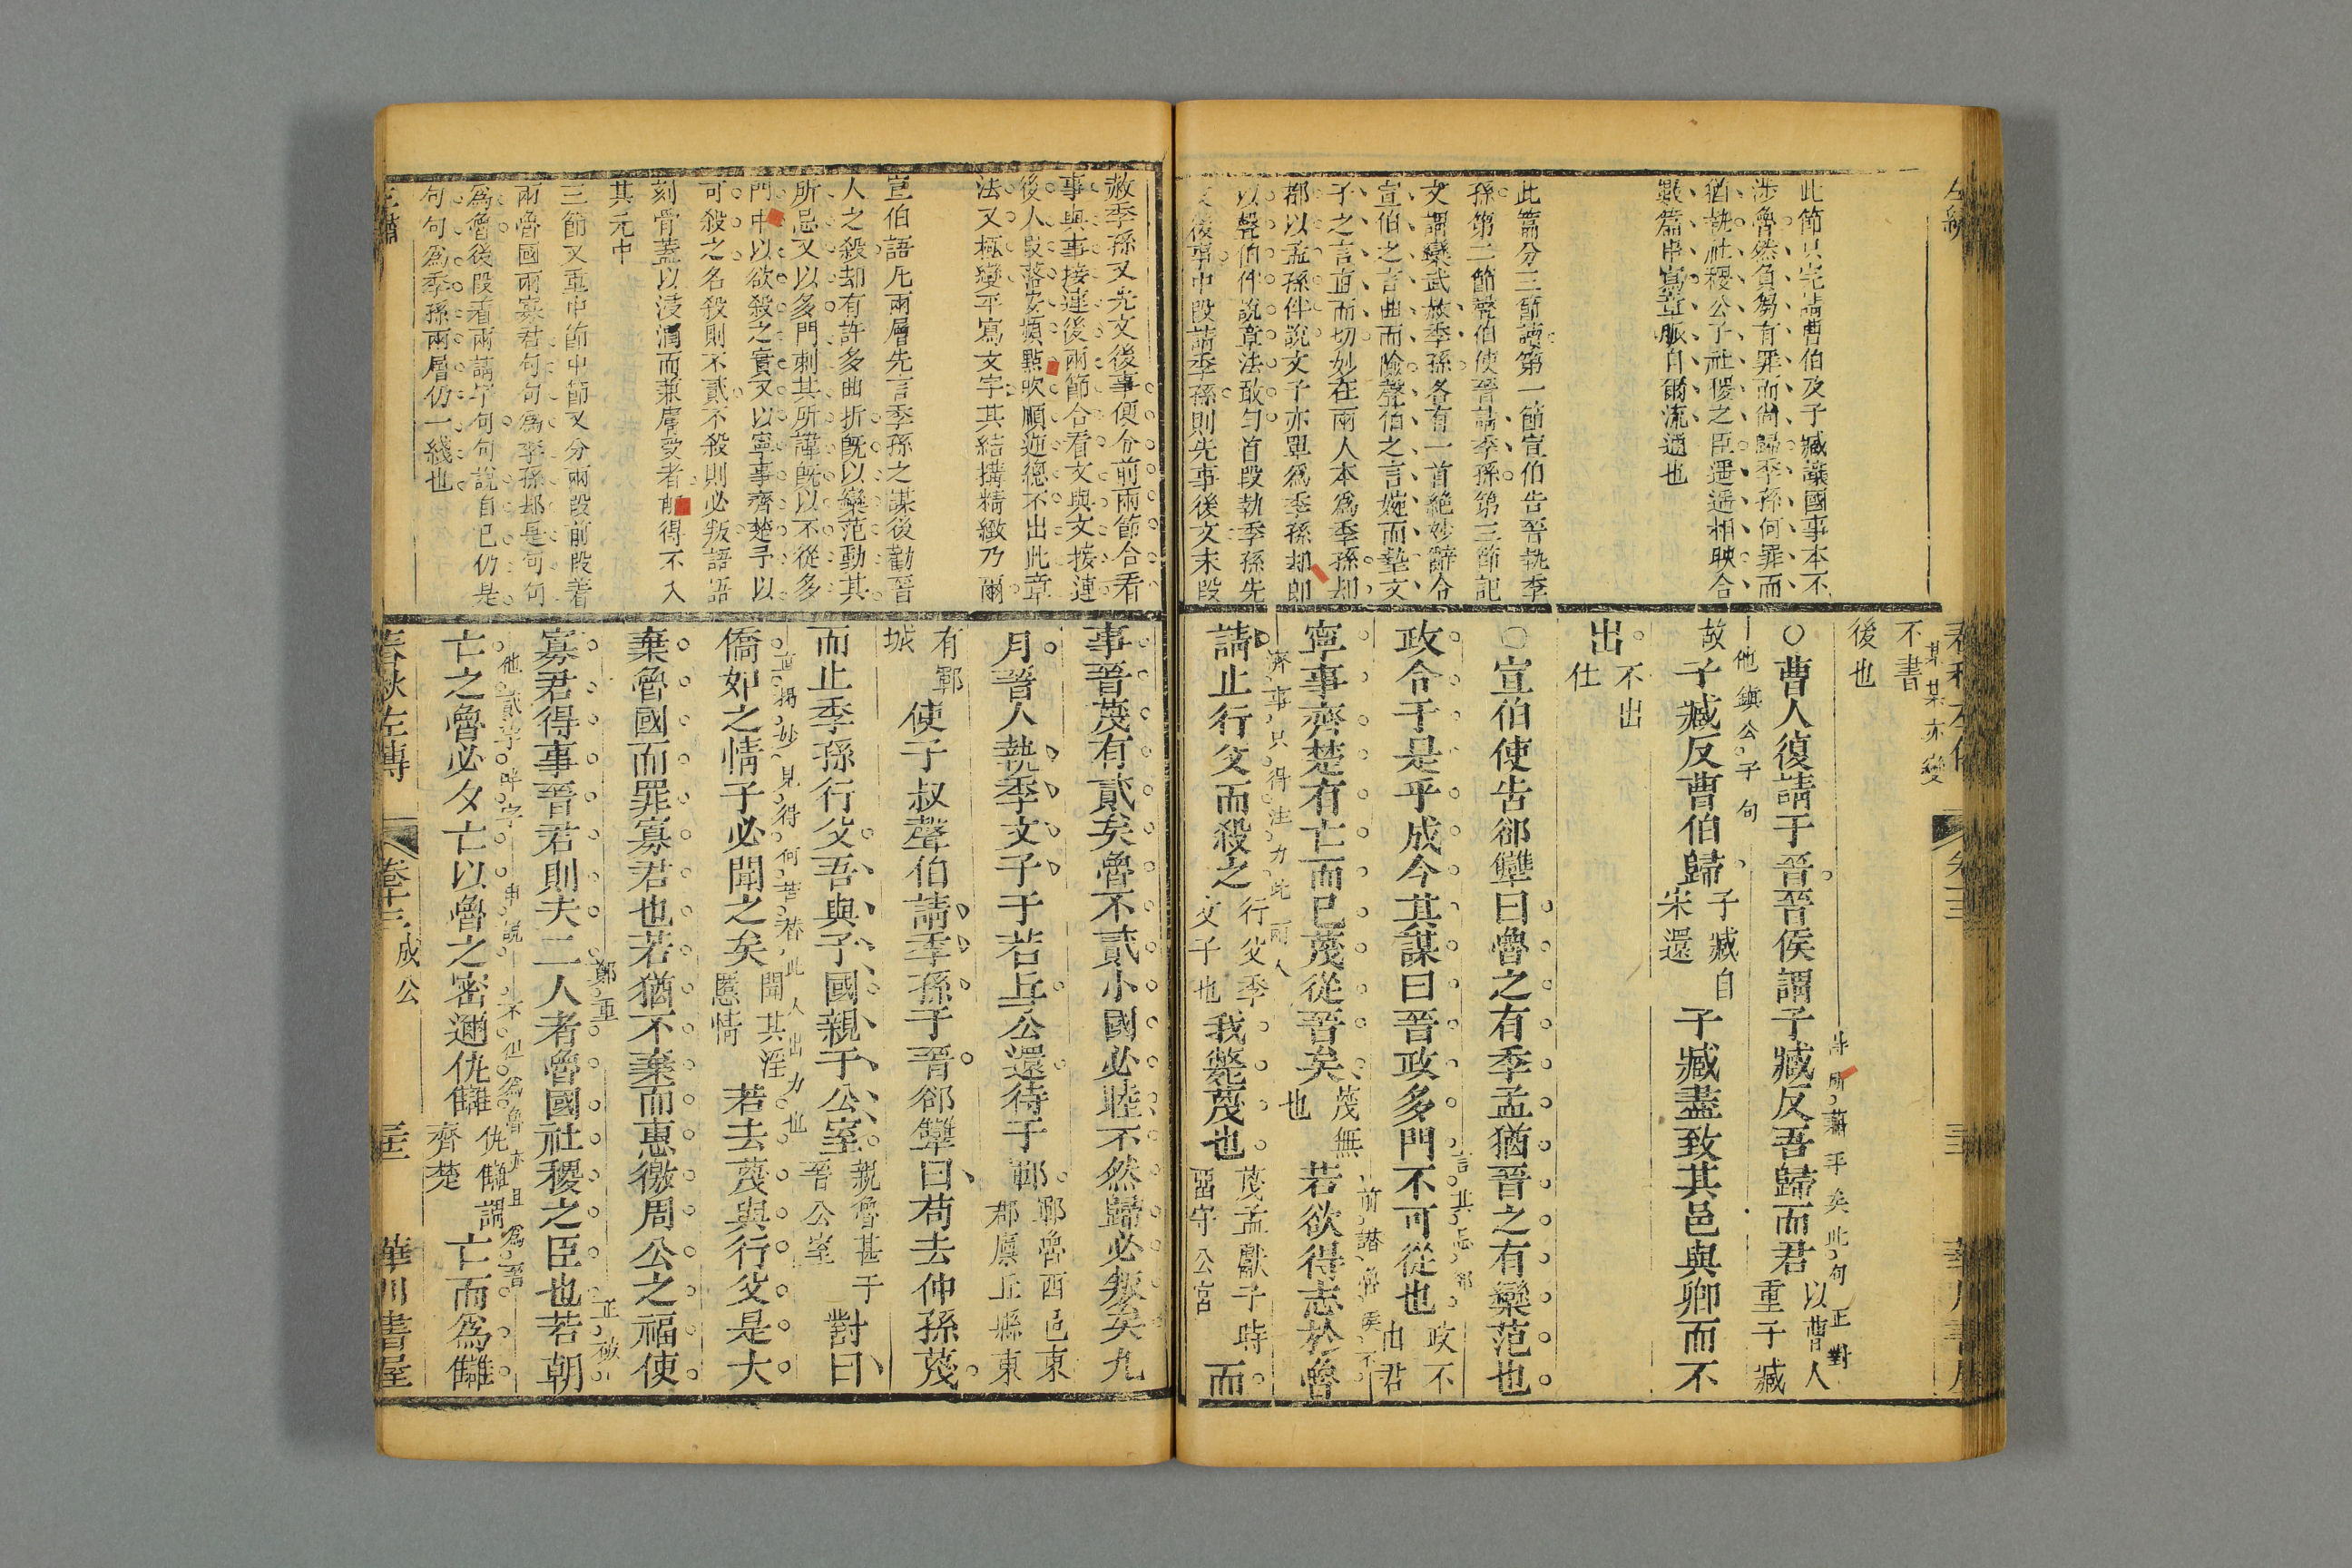 此節只完請曹伯及子臧讓國事本不
涉魯然負芻有罪而尚歸季孫何罪而
猶執社稷公子社稷之臣遥遥相映合
數篇串寫章脈自爾流通也
此篇分三節讀第一節宣伯告晉執季
孫第二節聲伯使晉請季孫第三節記
文謂欒武放季孫各有一首絶妙辭令
宣伯之言曲而險聲伯之言婉而摯文
子之言直而切妙在兩人本為季孫却
都以孟孫伴說文子亦單為季孫却即
以聲伯伴說章法敢勻首段執季孫先
文後事中段請季孫則先事後文末段
不書
後也
某某亦變
○曹人復請于晉晉侯謂子臧反吾歸而君
以曹人
重子臧
故
他鎮公子句
子臧反曹伯歸
子臧自
宋還
子臧盡致其邑與卿而不
出
不出
仕
○宣伯使告郤犨曰魯之有季孟猶晉之有欒范也
政令于是乎成今其謀曰晉政多門不可從也
政不
由君
寧事齊楚有亡而已蔑從晉矣
蔑無
也
若欲得志於魯
請止行父而殺之
行父季
文子也
我斃蔑也
蔑孟獻子時
留守公宮
而
赦季孫又先文後事便分前兩節合看
事與事接連後兩節合看文與文接連
後人叚落安頓點吹順逆總不出此章
法又極變平寫文字其結搆精緻乃爾
宣伯語凡兩層先言季孫之謀後勸晉
人之殺却有許多曲折旣以欒范動其
所忌又以多門刺其所諱旣以不從多
門中以欲殺之實又以寧事齊楚予以
可殺之名殺則不貳不殺則必叛語語
刻骨蓋以浸潤而兼膚受者
得不入
其元中
三節又重中節中節又分兩段前段着
兩魯國兩寡君句句為季孫却是句句
為魯後段着兩請字句句說自己仍是
句句為季孫兩層仍一綫也
事晉蔑有貳矣魯不貳小國必睦不然歸必叛矣九
月晉人執季文子于苕丘公還待于鄆
鄆魯西邑東
郡廩丘縣東
有鄆
城
使子叔聲伯請季孫于晉郤犨曰苟去仲孫蔑
而止季孫行父吾與子國親于公室
親魯甚于
晉公室
對曰
僑如之情子必聞之矣
聞其淫
慝情
若去蔑與行父是大
棄魯國而罪寡君也若猶不棄而惠徼周公之福使
寡君得事晉君則夫二人者魯國社稷之臣也若朝
亡之魯必夕亡以魯之密邇仇讎
仇讎謂
齊楚
亡而為讎
春秋左傳
卷十三
成公
華川書屋